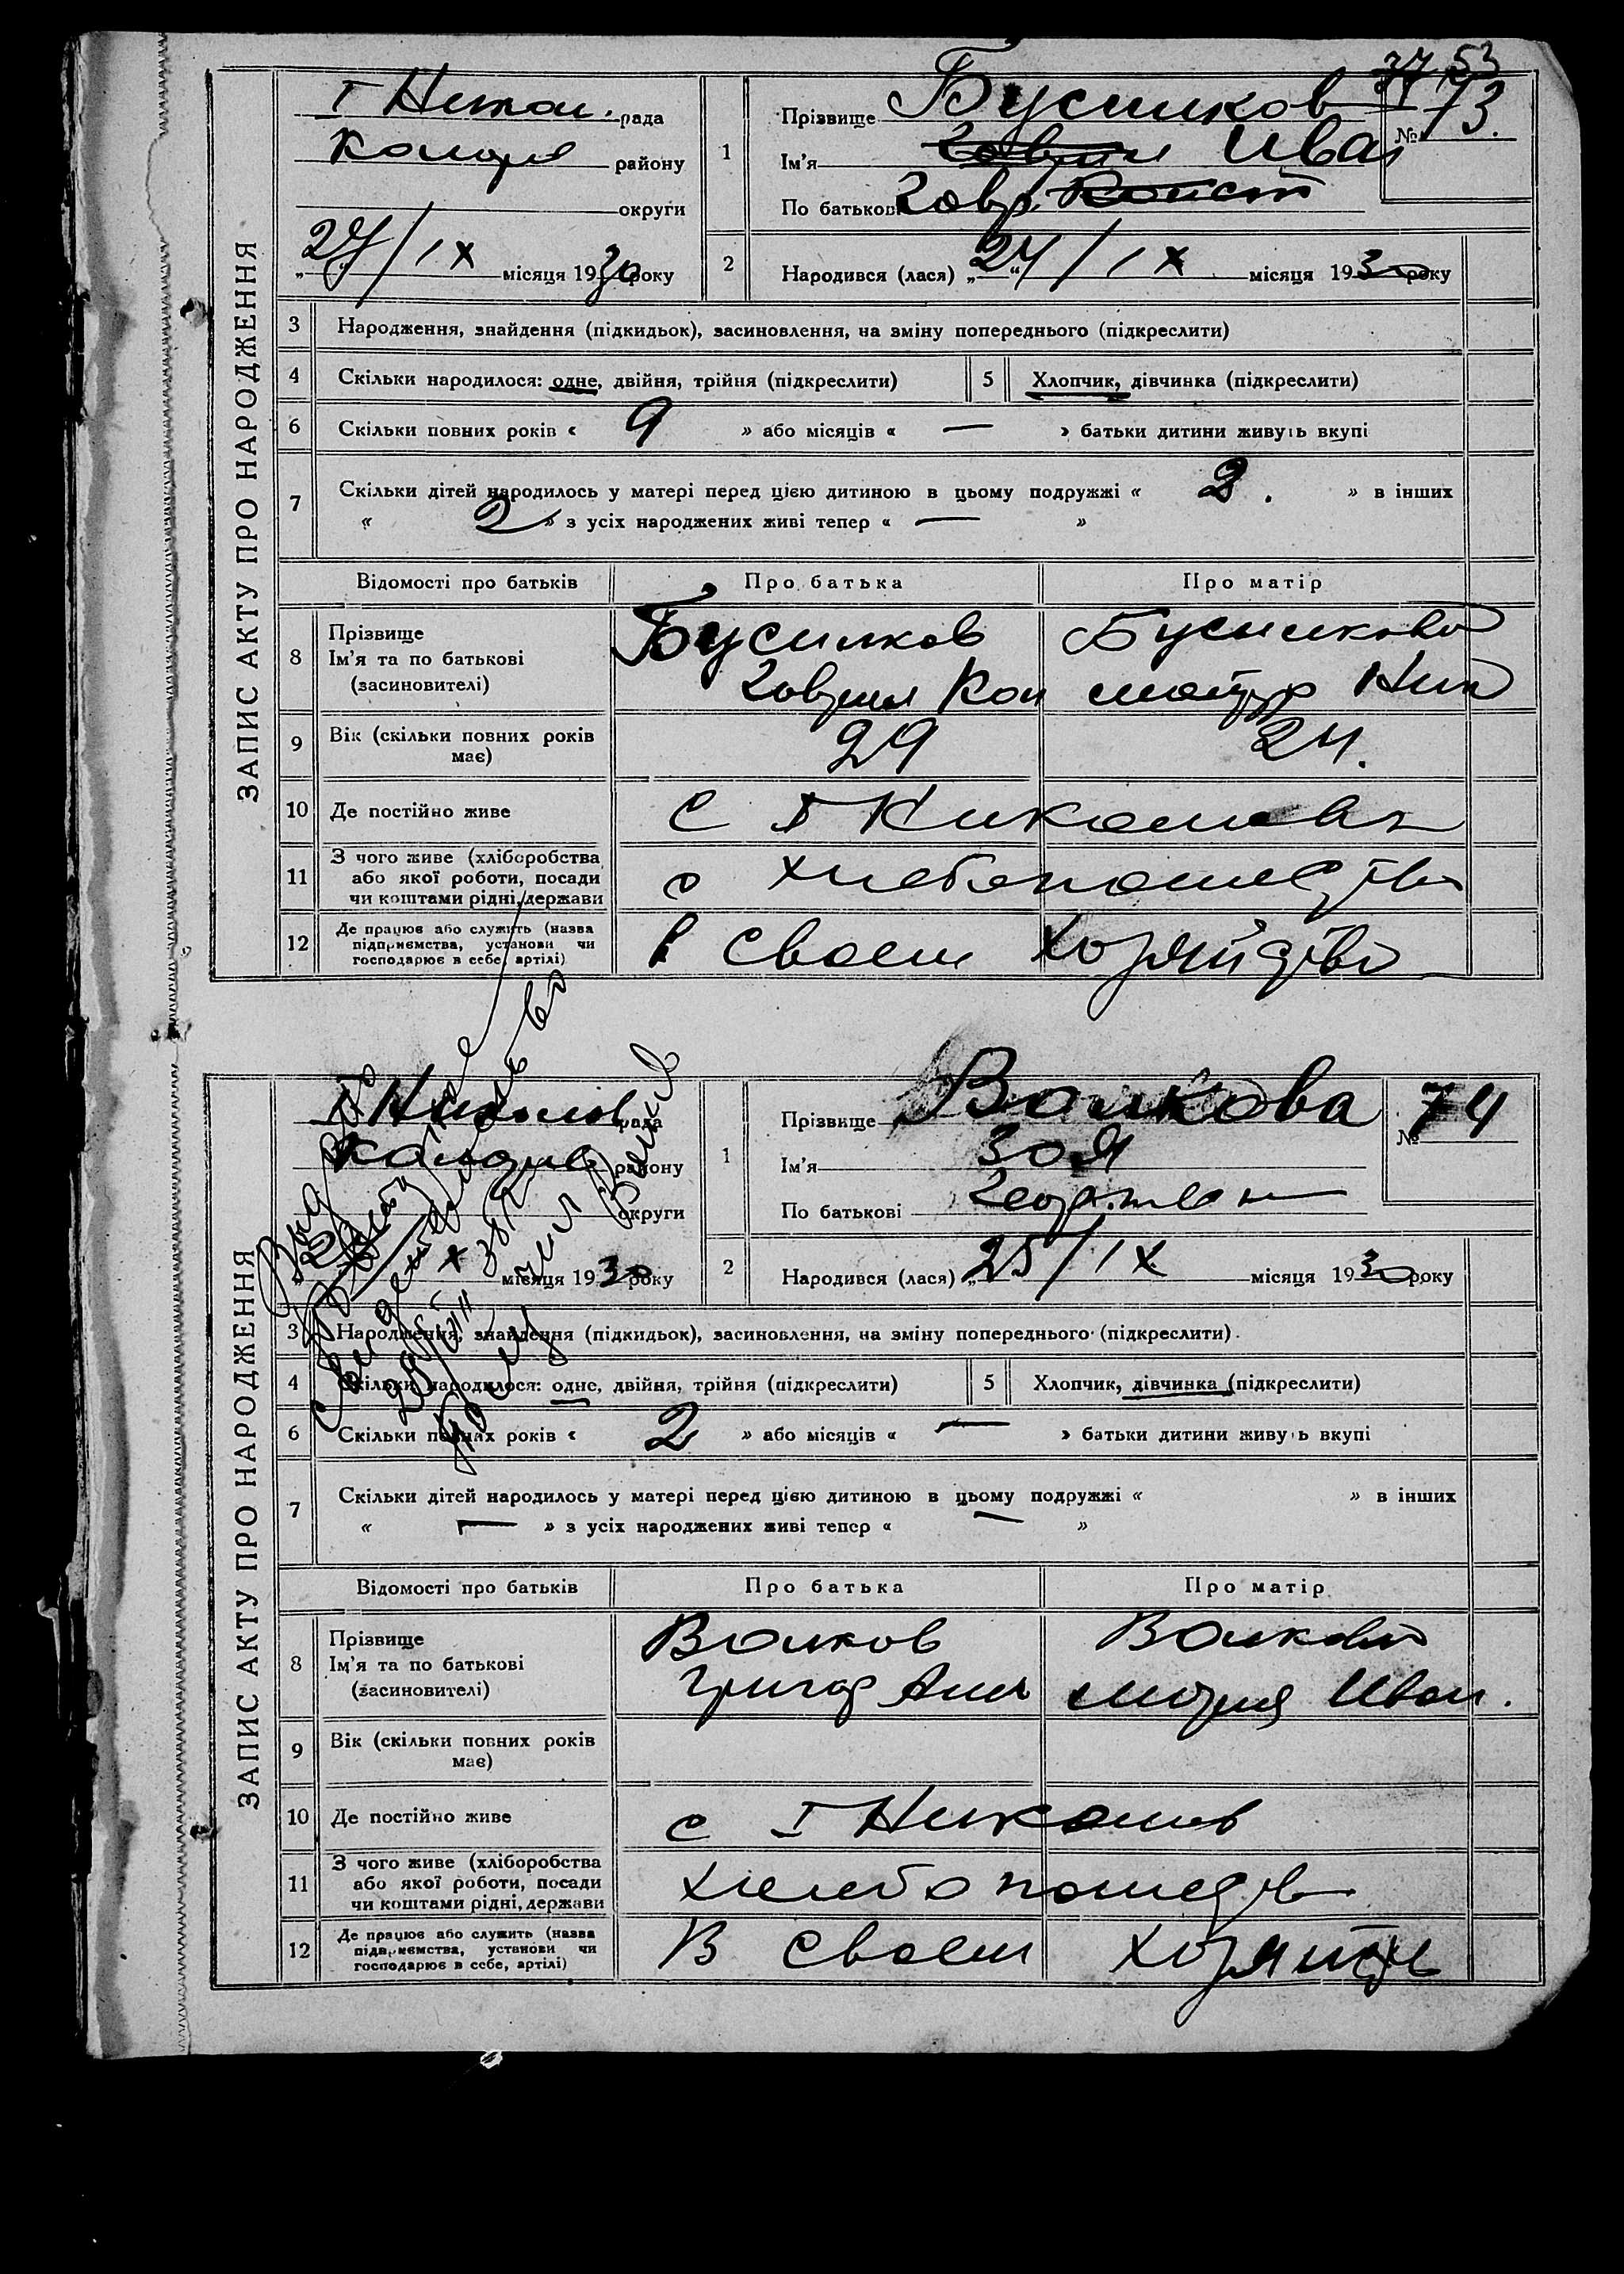 77 53
І Никол. рада
району
округи
27/IX місяця 1930 року
1
Прізвище Бусилков
№ 73.
Ім'я Гаврил Иван
По батькові Гавр. Конст
2
Народився (лася) „24“/IX місяця 1930 року
ЗАПИС АКТУ ПРО НАРОДЖЕННЯ
3 Народження, знайдення (підкидьок), засиновлення, на зміну попереднього (підкреслити)
4 Скільки народилося: одне, двійня, трійня (підкреслити) 5 Хлопчик, дівчинка (підкреслити)
6 Скільки повних років « 9 » або місяців « — » батьки дитини живуть вкупі
7 Скільки дітей народилось у матері перед цією дитиною в цьому подружжі « 2. » в інших
« 2 » з усіх народжених живі тепер « — »
Відомості про батьків Про батька Про матір
8 Прізвище Бусилков Бусилкова
Ім'я та по батькові
(засиновителі) Гаврил Кон Матр Ник
9 Вік (скільки повних років має) 29 24.
10 Де постійно живе с І Николаевк
11 З чого живе (хліборобства
або якої роботи, посади
чи коштами рідні, держави
12 Де працює або служить (назва
підприємства, установи чи
господарює в себе, артілі) В своем хозяйстве
І Никол рада
району
округи
місяця 1930 року
1
Прізвище Волкова
№ 74
Ім'я Зоя
По батькові
2
Народився (лася) „25/IX місяця 1930 року
ЗАПИС АКТУ ПРО НАРОДЖЕННЯ
3 Народження, знайдення (підкидьок), засиновлення, на зміну попереднього (підкреслити)
4 Скільки народилося: одне, двійня, трійня (підкреслити) 5 Хлопчик, дівчинка (підкреслити)
6 Скільки повних років « 2 » або місяців « — » батьки дитини живуть вкупі
7 Скільки дітей народилось у матері перед цією дитиною в цьому подружжі « » в інших
« — » з усіх народжених живі тепер « — »
Відомості про батьків Про батька Про матір
8 Прізвище Волков Волкова
Ім'я та по батькові
(засиновителі) Григор Мария Иван.
9 Вік (скільки повних років має)
10 Де постійно живе с І Николаев
11 З чого живе (хліборобства
або якої роботи, посади
чи коштами рідні, держави
12 Де працює або служить (назва
підприємства, установи чи
господарює в себе, артілі) В своем хозяйстве